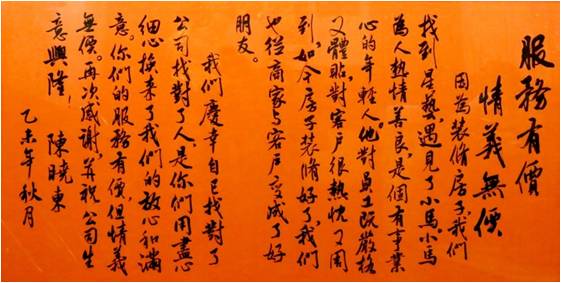 服務有價
情義無價
因為裝脩房子我們
找到星藝,遇見了小馬。小馬
為人熱情善良,是個有事業
心的年輕人。他對員工既嚴格
又體貼,對客户很熱忱又周
到,如今房子裝脩好了,我們
也從商家与客户变成了好
朋友。
我們慶幸自已找對了
公司找對了人,是你們用盡心
細心換來了我們的放心和滿
意。你們的服務有價,但情義
無價。再次感謝,并祝公司生
意興隆!
陳曉東
乙未年秋月